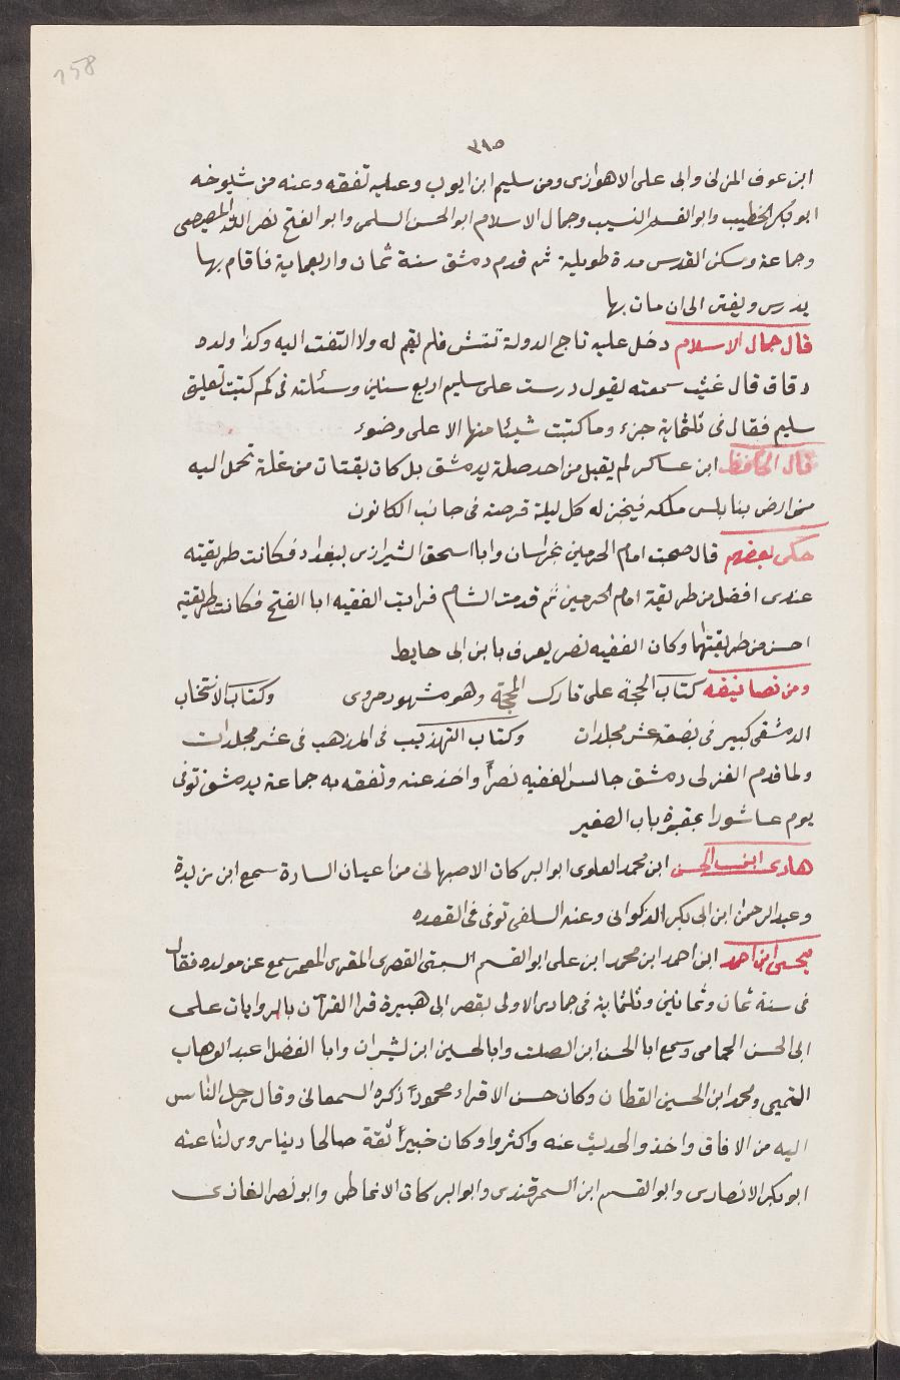 158
٣١٥
ابن عوف المزنى وابى على الاهوازى ومن سليم ابن ايوب وعليه تفقه وعنه من شيوخه
ابو بكر الخطيب وابو القسم النسيب وجمال الاسلام ابو الحسن السلمى وابو الفتح نصر الله المصيصى
وجماعة وسكن القدس مدة طويلة ثم قدم دمشق سنة ثمان واربعماية فاقام بها
يدرس ويفتى الى ان مات بها
قال جمال الاسلام دخل عليه تاج الدولة تتش فلم يقم له ولا التفت اليه وكذا ولده
دقاق قال غيث سمعته يقول درست على سليم اربع سنين وسئلته فى كم كتبت تعليق
سليم فقال فى ثلثماية جزء وما كتبت شيئا منها الا على وضوء
قال الحافظ ابن عساكر لم يقبل من احد صلة بدمشق بل كان يقتات من غلة تحمل اليه
من ارض بنابلس ملكه فيخبز له كل ليلة قرصة فى جانب الكانون
حكى بعضهم قال صحبت امام الحرمين بخراسان وابا اسحق الشيرازى ببغداد فكانت طريقته
عندى افضل من طريقة امام الحرمين ثم قدمت الشام فرايت الفقيه ابا الفتح فكانت طريقته
احسن من طريقتهما وكان الفقيه نصر يعرف بابن ابى حايط
ومن تصانيفه كتاب الحجة على تارك المحجة وهو مشهور مروى وكتاب الانتخاب
الدمشقى كبير فى بضعة عشر مجلدات وكتاب التهذيب فى المذهب فى عشر مجلدات
ولما قدم الغزلى دمشق جالس الفقيه نصراً واخذ عنه وتفقه به جماعة بدمشق توفى
يوم عاشورا بمقبرة باب الصغير
هادى ابن الحسن ابن محمد العلوى ابو البركات الاصبهانى من اعيان السادة سمع ابن بريدة
وعبد الرحمن ابن ابى بكر الذكوانى وعنه السلفى توفى فى القعده
يحيى ابن احمد ابن احمد ابن محمد ابن على ابو القسم السبتى القصرى المقرى المعمر سمع عن مولده فقال
فى سنة ثمان وثمانين وثلثماية فى جمادى الاولى بقصر ابى هبيرة قرا القرآن بالروايات على
ابى الحسن الحمامى وسمع ابا الحسن ابن الصلت وابا الحسين ابن بشران وابا الفضل عبد الوهاب
التميمى ومحمد ابن الحسين القطان وكان حسن الاقراء مجموداً ذكره السمعانى وقال رحل الناس
اليه من الافاق واخذوا الحديث عنه واكثروا وكان خبيراً ثقة صالحا دينا روى لنا عنه
ابو بكر الانصارى وابو القسم ابن السمرقندى وابو البركات الانماطى وابو نصر الغازى